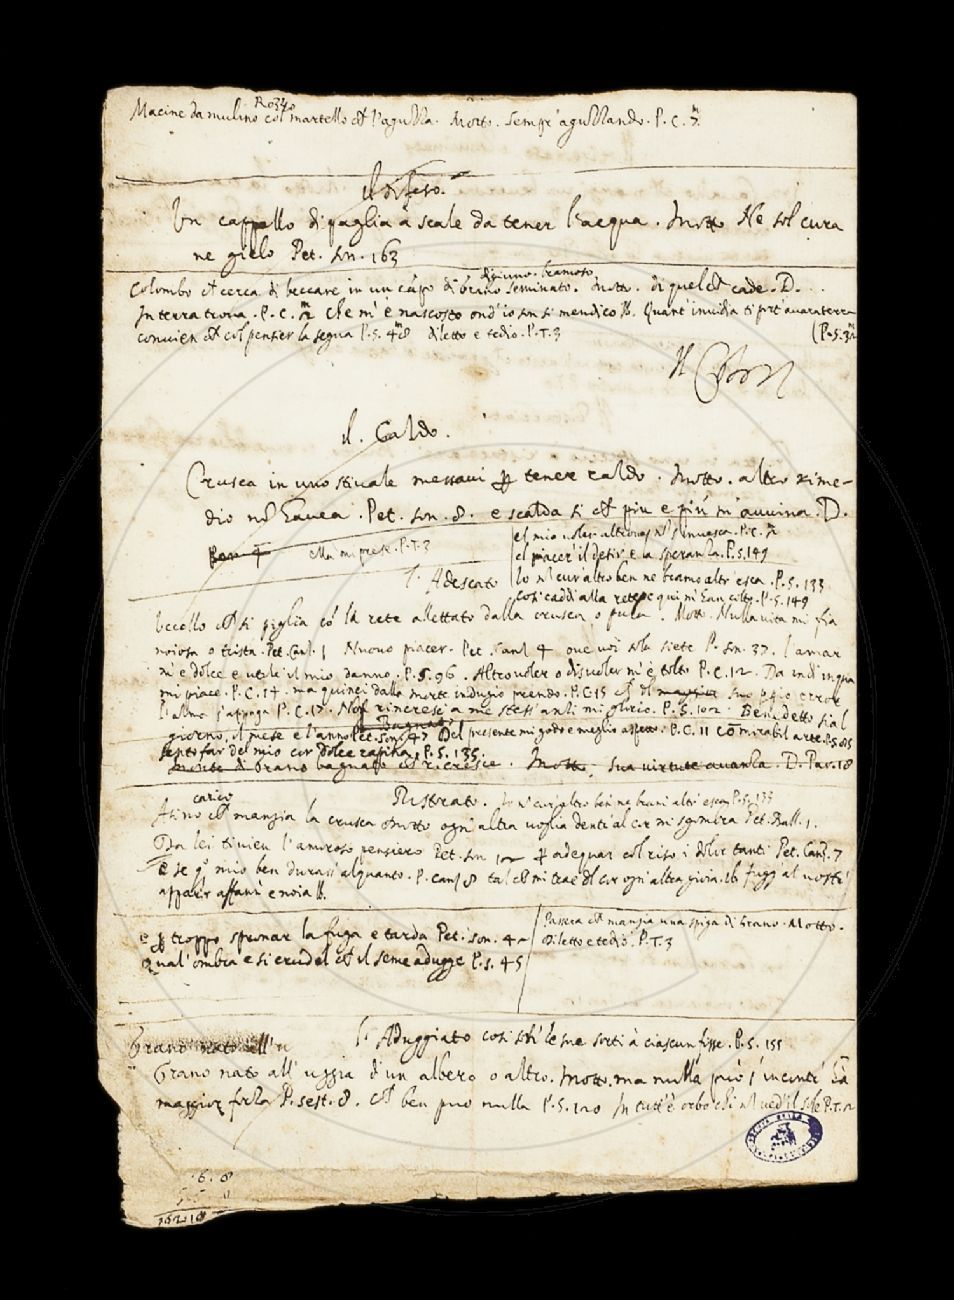 Rozzo
Macine da mulino col martello ch l'aguzza. Motto. Sempr'aguzzando. P. C.
Il difeso.
Un cappello di paglia à scale da tener l'acqua. Motto Ne sol cura
ne gielo Pet. Son. 163
digiuno. bramoso
Colombo ch cerca di beccare in un cāpo di grano seminato. Motto. di quel ch cade. D.
In terra trova. P. C. che m'è nascosto ond'io son si mendico Ib. Quant'invidia ti port'avara terra
convien ch col pensier la segua P. S. 48 diletto e tedio. P. T. 3
(P. S. 32
Il
il Caldo.
Crusca in uno stivale messavi ꝑ tenere caldo. Motto. altro rime-
dio non havea. Pet. son. 8. e scalda si ch piu e più m'avvina. D.
el mio voler altrove s'invesca. P. C.
ella mi prese. P. T. 3
el piacer il desir e la speranza. P. S. 149
l'Adescato
Io n cur'altro ben ne bramo altr'esca. P. S. 133
cosi caddi alla rete e qui mi han colto. P. S. 149
Uccello ch si piglia cō la rete allettato dalla crusca o pula. Motto. Nulla vita mi fia
noiosa o trista. Pet. Canz. 1 Nuovo piacer. Pet. Canz. 4 ove voi sola siete P. Son. 37. l'amar
m'è dolce e utile il mio danno. P. S. 96. Altro voler o disvoler m'è tolto P. C. 12. Da indi in qua
mi piace. P. C. 14. ma quinci dalla morte indugio prendo. P. C 15 suo pgio error
l'alma s'appaga P. C. 17. Non rincresc'a me stess'anzi mi glorio. P. S. 102. Benedetto sia l
il Bagnato
giorno, il mese e l'anno Pet. Son. 47 Del presente mi godo e meglio aspetto. P. C. 11 cō mirabil arte. P. S. 85
sento far del mio cor dolce rapina, P. S. 135.
grano bagnato ch ricresce. Motto. Sua virtute avanza. D. Par. 18
carico
Ristorato. Io n cur'altro ben ne brami altr'esca P. S. 133
Asino ch mangia la crusca Motto ogni altra voglia dentr'al cor mi sgombra Pet. Ball. 1.
Da lei ti vien l'amoroso pensiero Pet. Son. ꝑ adequar col riso i dolor tanti Pet. Canz. 7
E se qo mio ben durass'alquanto. P. canz 8 tal ch mi trae dl cor ogn'altra gioia. Ib. fugg'al vostr'
apparir affanni e noia Ib.
Passera ch mangia una spiga di Grano. Motto.
Diletto e tedio. P. T. 3
e ꝑ troppo spronar la fuga e tarda Pet. son. 42
Qual'ombra e si crudel ch il seme adugge P. s. 45
Grano nato all'u
l'Aduggiato cosi son le sue sorti à ciascun fisse. P. S. 155
Grano nato all'uggia d'un albero o altro. Motto. ma nulla può s'incontr'hā
maggior forza P. sest. 8. ch ben può nulla P. S. 120 In tutt'è orbo chi n ved'il sole P. T. 2